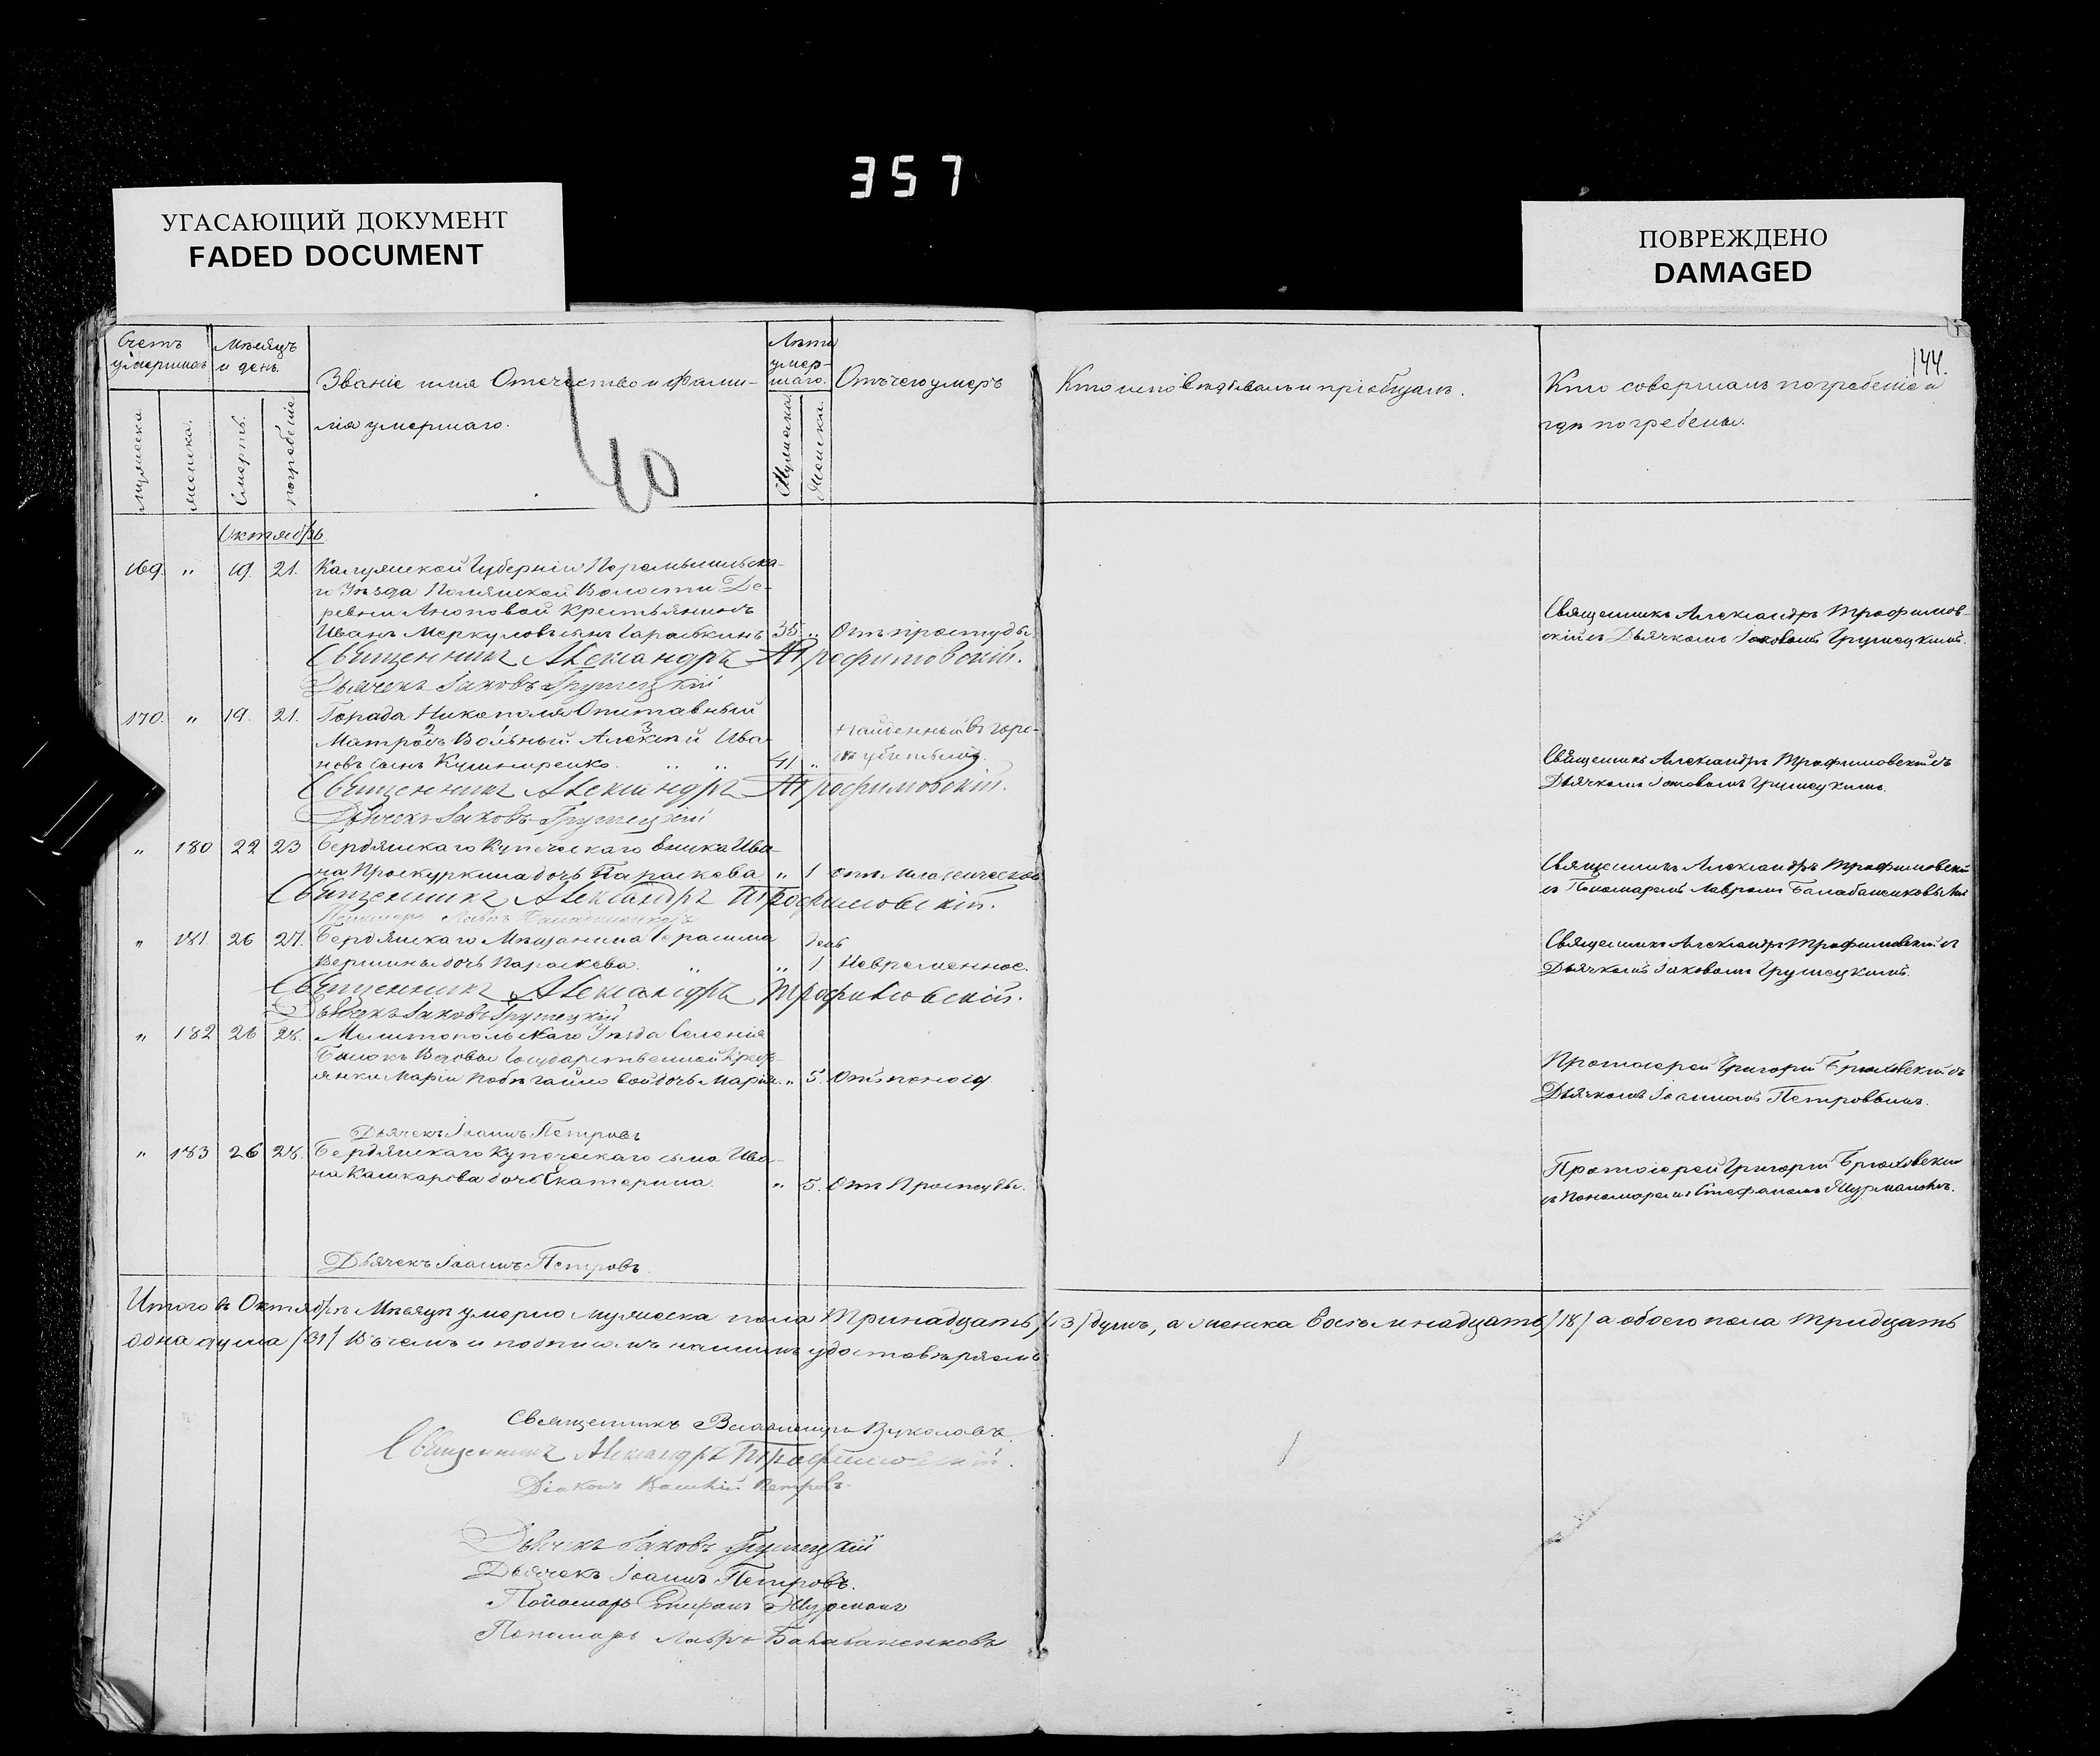 357
УГАСАЮЩИЙ ДОКУМЕНТ
FADED DOCUMENT
ПОВРЕЖДЕНО
DAMAGED
144.
Счетъ умершихъ
Мѣсяцъ и день.
Званіе имя Отечество и Фами-
лія умершаго.
Лѣта умер-
шаго.
Отъ чего умеръ
Кто исповѣдывалъ и пріобщалъ.
Кто совершалъ погребеніе и
гдѣ погребены.
мужеска.
женска.
Смерть.
погребеніе
Мужеска
Женска.
40
Октябрь
169. " 19. 21. Калужской Губерніи Перемышльска-
го Уѣзда Волости Де-
ревни Крестьянинъ
Иванъ Меркуловъ сынъ 35. " Отъ простуды.
Священникъ Александръ Трофимов-
скій съ Дьячкомъ Іаковомъ Грушецкимъ.
Священникъ Александръ Трофимовскій.
Дьячекъ Іаковъ Грушецкій
170. " 19. 21. Города Никополя Отставный
Матрозъ Вольный Алексѣй Ива-
новъ сынъ Кушниренко. " " 41. "
Найденный въ горо-
дѣ убитымъ.
Священникъ Александръ Трофимовскій съ
Дьячкомъ Іаковомъ Грушецкимъ.
Священникъ Александръ Трофимовскій.
Дьячекъ Іаковъ Грушецкій
" 180 22 23 Бердянскаго Купеческаго внука Ива-
на Проскурнина дочь Параскева " 1 отъ младенческой
Священникъ Александръ Трофимовскій
съ Пономаремъ Лавромъ Балабаненковымъ
Священникъ Александръ Трофимовскій.
Пономарь Лавръ Балабаненковъ
" 181. 26 27. Бердянскаго Мѣщанина Герасима
Вершины дочь Параскева. " " 1. день Невременное.
Священникъ Александръ Трофимовскій съ
Дьячкомъ Іаковомъ Грушецкимъ.
Священникъ Александръ Трофимовскій.
Дьячекъ Іаковъ Грушецкій
" 182 26 28. Мелитопольскаго Уѣзда селенія
Государственной Кресть-
янки Маріи дочь Марія. " 5. Отъ поносу
Протоіерей Григорій Брюховскій съ
Дьячкомъ Іоанномъ Петровымъ.
Дьячекъ Іоаннъ Петровъ
" 183 26 28. Бердянскаго Купеческаго сына Ива-
на Кашкарова дочь Екатерина. " 5. Отъ Простуды.
Протоіерей Григорій Брюховскій
съ Пономаремъ Стефаномъ Журманомъ.
Дьячекъ Іоаннъ Петровъ.
Итого въ Октябрѣ Мѣсяцѣ умерло мужеска пола Тринадцать /13/ душъ, а женска Восемнадцать /18/ а обоего пола тридцать
одна душа /31/ Въ чемъ и подписомъ нашимъ удостовѣряемъ
Священникъ Владиміръ Вуколовъ.
Священникъ Александръ Трофимовскій.
Діаконъ Василій Петровъ.
Дьячекъ Іаковъ Грушецкій
Дьячекъ Іоаннъ Петровъ.
Пономарь Стефанъ Журманъ
Пономарь Лавръ Балабаненковъ